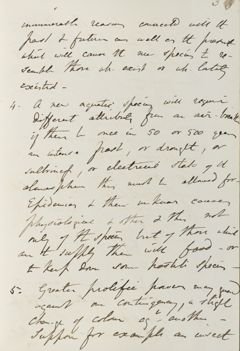 innumerable reasons connected with the
past & future as well as the present
which will cause the new species to re-
semble those wh. exist or wh. lately
existed -
4. A new aquatic species will require
different attributes from an air-
if there be once in 50 or 500 years
an intense frost, or drought, or
or electrical state of the
atmosphere this must be allowed for
Epidemics & their unknown causes
physiological & other & this not
only of the species but of those which
are to supply them with food - or
to keep down some hostile species -
5. Greater prolific powers may guard
against one contingency, a slight
change of colour agst. another -
Suppose for example an insect